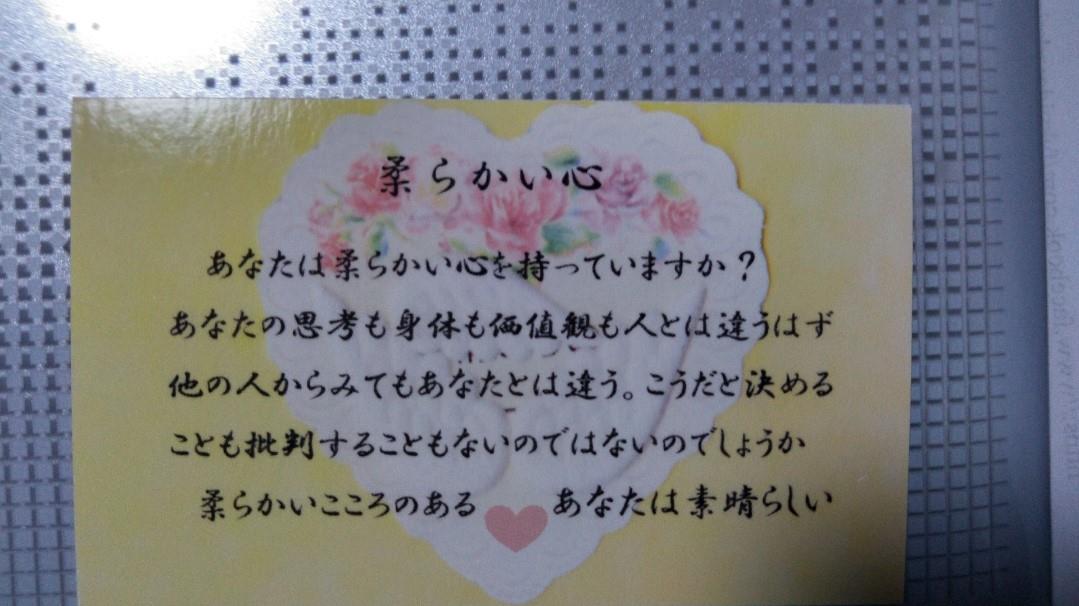 柔らかい心
あなたは柔らかい心を持っていますか？
あなたの思考も身体も価値観も人とは違うはず
他の人からみてもあなたとは違う。こうだと決める
ことも批判することもないのではないのでしょうか
柔らかいこころのある あなたは素晴らしい